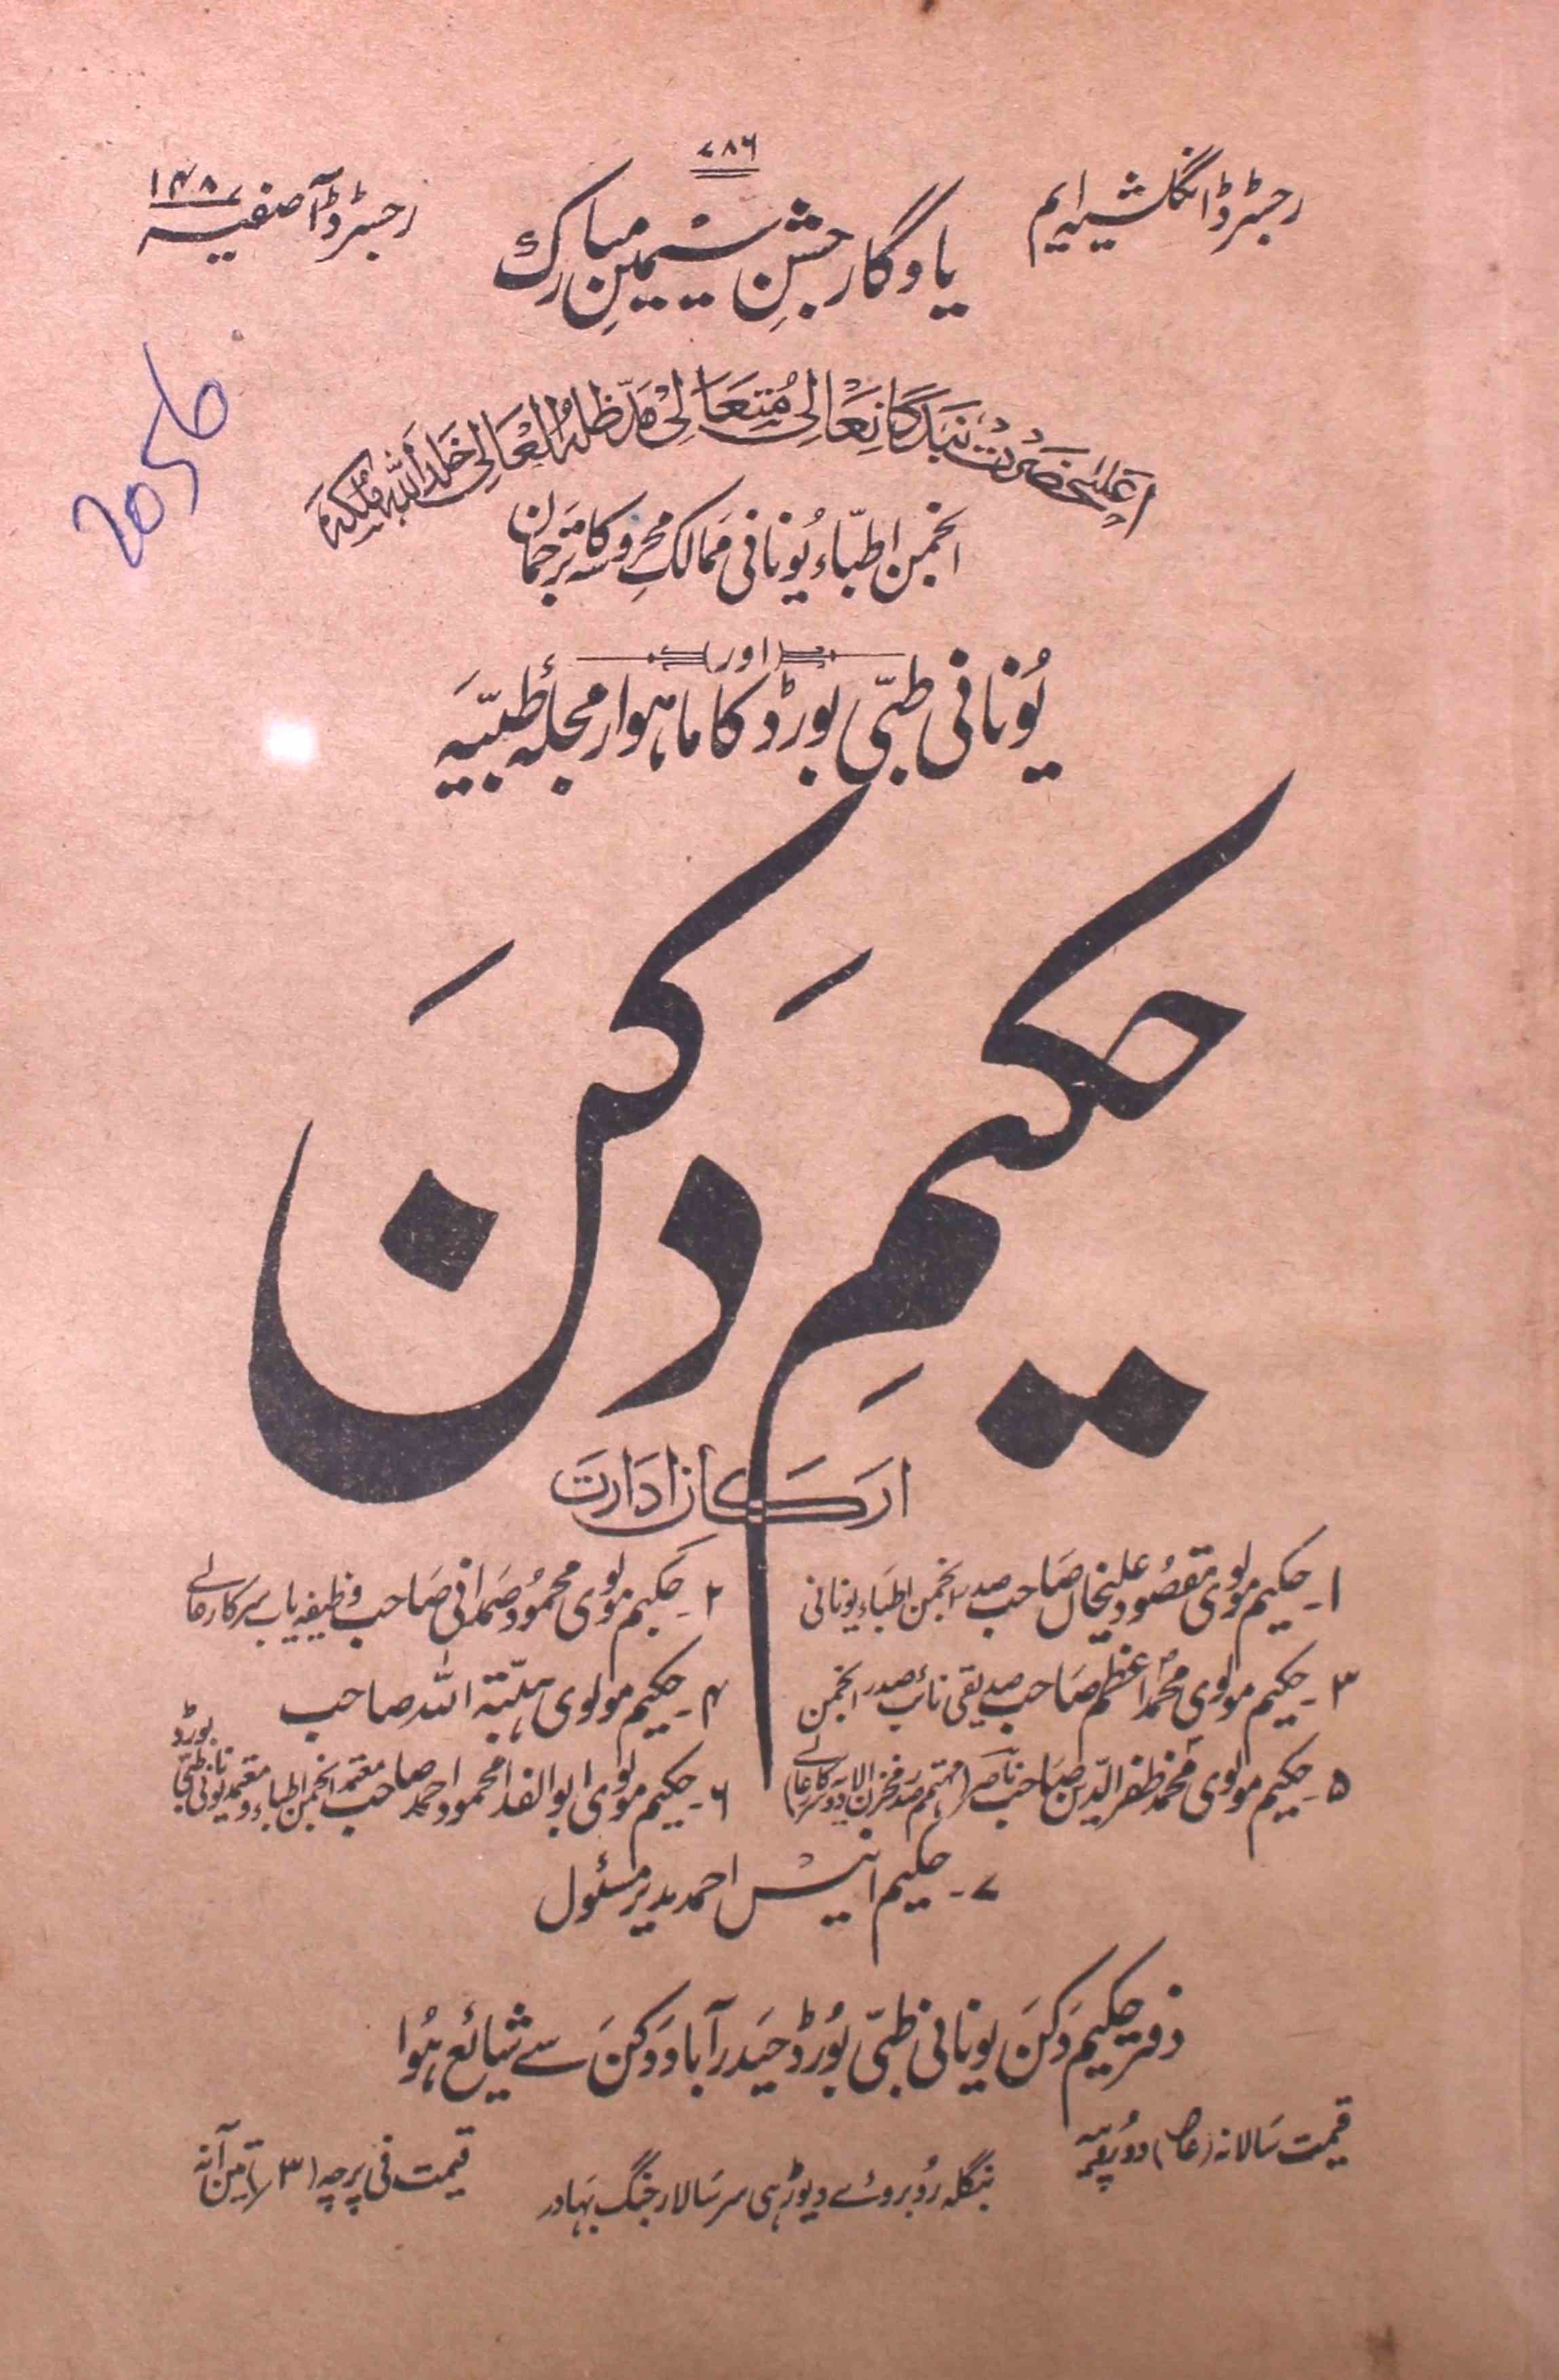 ۷۸۶
رجسٹرڈ انگلشیہ ایم
یادگار جشنِ سیمینِ مبارک
رجسٹرڈ آصفیہ ۱۴۸۷
اعلیٰحضرت بندگانعالی متعالی مدظلہ العالی خلد اللہ ملکہ
انجمن اطبّاء یُونانی ممالکِ محروسہ کا ترجمان
(اور)
یُونانی طبّی بورڈ کا ماہوار مجلہ طبّیہ
حکیمِ دَکَن
ارکان ادارت
۱۔ حکیم مولوی مقصود علیخاں صاحب صدر انجمن اطباء یونانی
۲۔ حکیم مولوی محمود صمدانی صاحب وظیفہ یاب سرکار عالی
۳۔ حکیم مولوی محمد اعظم صاحب صدیقی نائب صدر انجمن
۴۔ حکیم مولوی ہبّتہ اللہ صاحب
۵۔ حکیم مولوی محمد ظفر الدین صاحب ناصر (مہتمم صدر مخزن الادویہ سرکار عالی)
۶۔ حکیم مولوی ابوالفدا محمود احمد صاحب معتمد انجمن اطباء و معتمد یونانی طبی بورڈ
۷۔ حکیم انیس احمد مدیر مسئول
دفتر حکیم دَکَن یونانی طبّی بُورڈ حیدرآباد دَکَن سے شائع ہُوا
قیمت سالانہ (عا) دو روپیہ
بنگلہ رُوبروئے دیوڑھی سر سالار جنگ بہادر
قیمت فی پرچہ (۳؍) تین آنہ